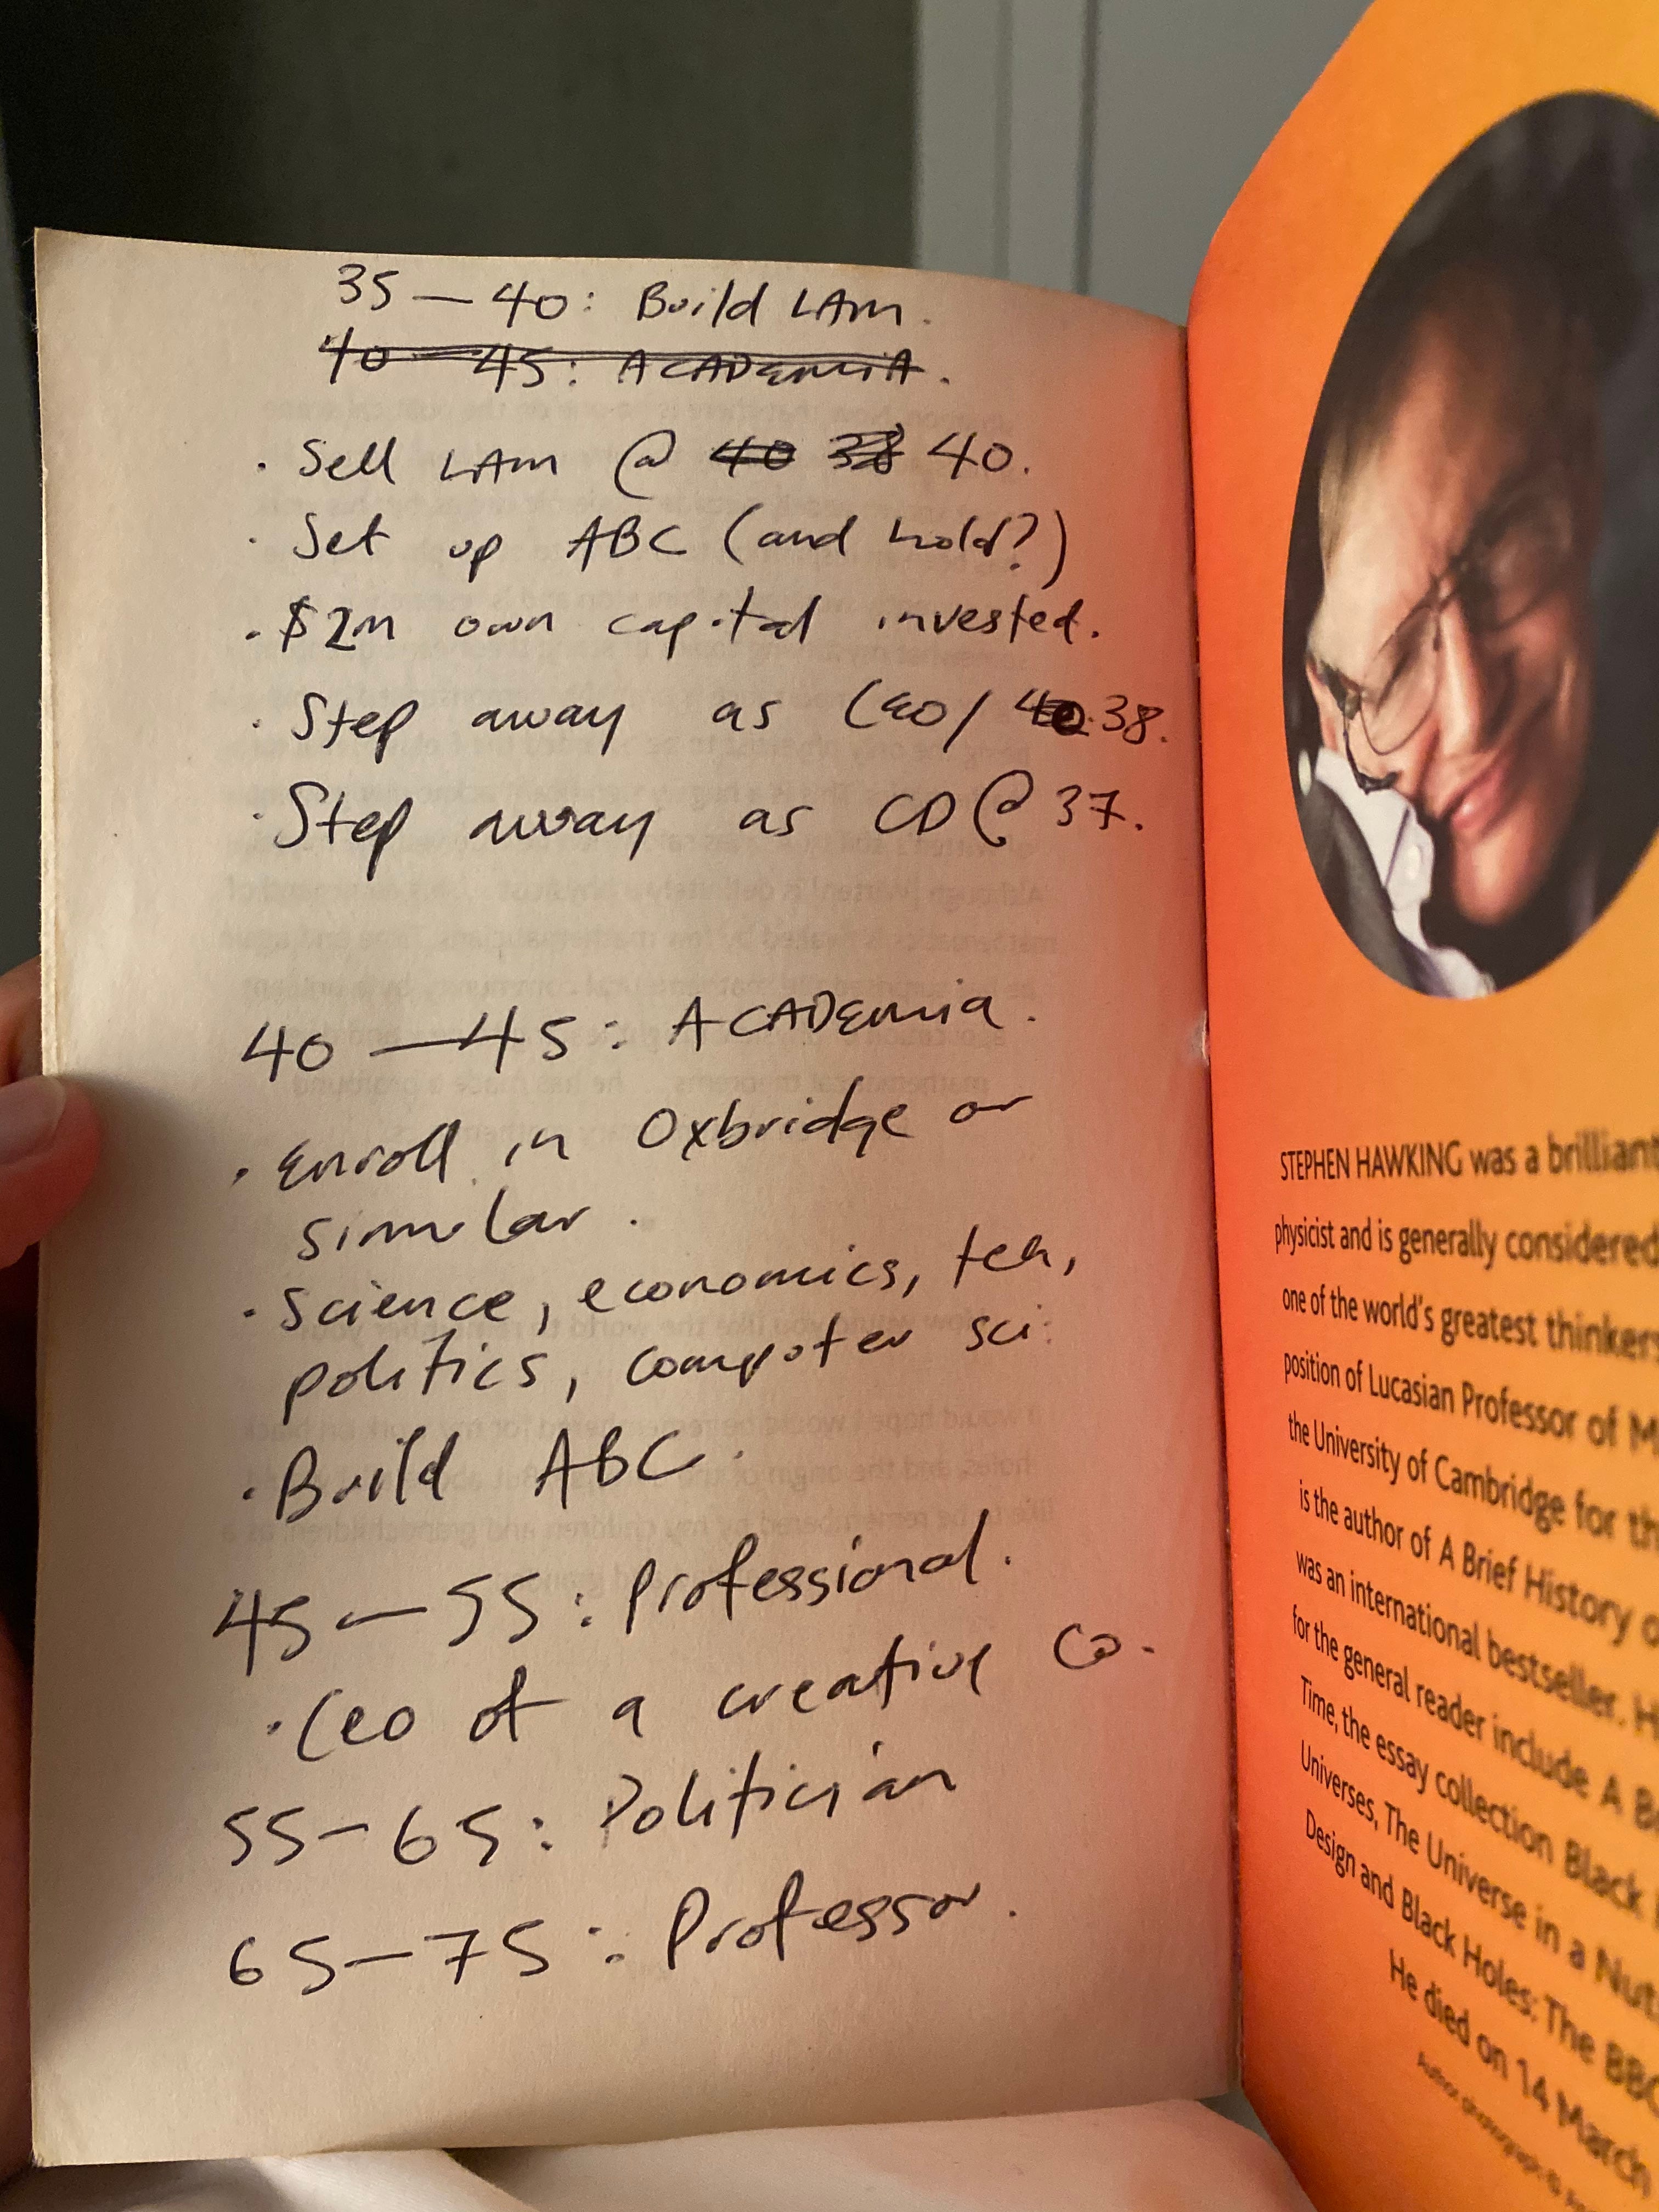 35 — 40: Build LAM.
40 — 45: ACADEMIA.
· Sell LAM @ 40 38 40.
· Set up ABC (and hold?)
· $2m own capital invested.
· Step away as CEO / 40 38.
· Step away as CD @ 37.
40 — 45: ACADEMIA.
· Enroll in Oxbridge or
similar.
· Science, economics, tech,
politics, computer sci.
· Build ABC.
45 — 55: Professional.
· CEO of a creative Co.
55 - 65: Politician
65 — 75: Professor.
STEPHEN HAWKING was a brilliant
physicist and is generally considered
one of the world's greatest thinkers
position of Lucasian Professor of M
the University of Cambridge for th
is the author of A Brief History o
was an international bestseller. H
for the general reader include A B
Time, the essay collection Black
Universes, The Universe in a Nut
Design and Black Holes: The BBC
He died on 14 March
Author photograph ©